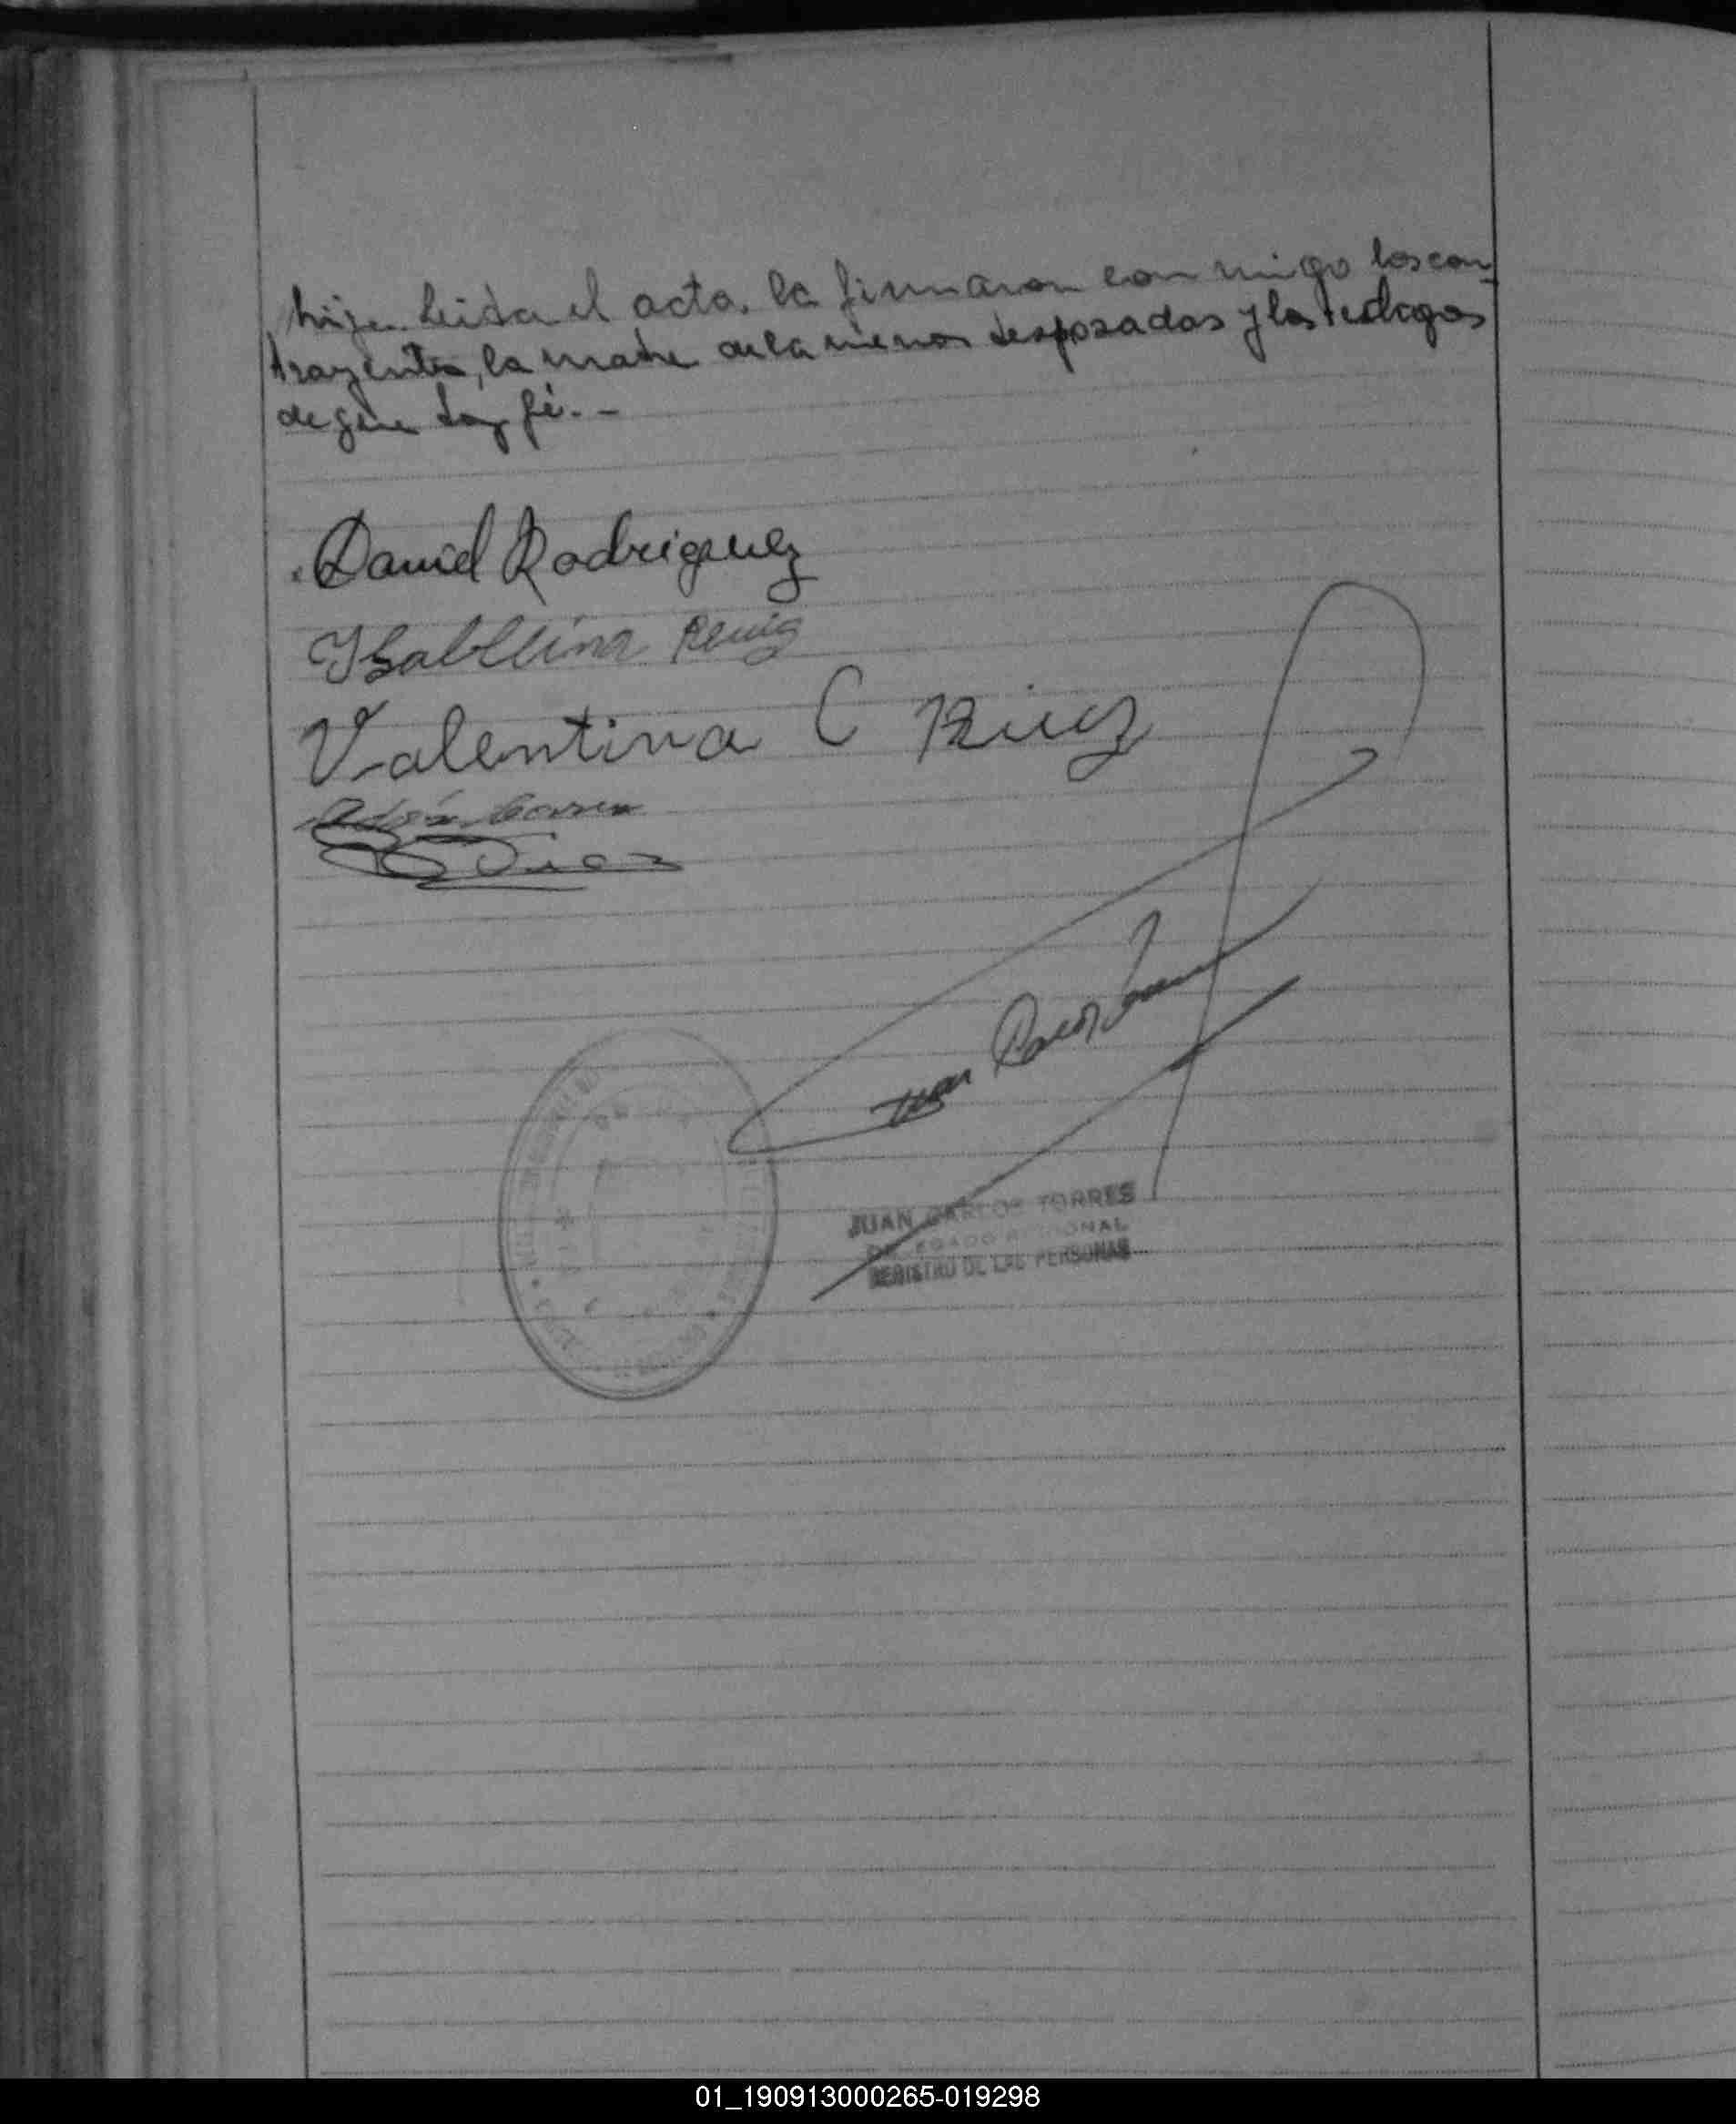 hija. Leida el acta, la firmaron con migo los con-
trayentes, la madre de la menor desposadas y los testigos
de que doy fé. -
Daniel Rodriguez
Ysabellina Ruiz
Valentina C Ruiz
Juan Carlos Torres
JUAN CARLOS TORRES
DELEGADO REGIONAL
REGISTRO DE LAS PERSONAS
01_190913000265-019298